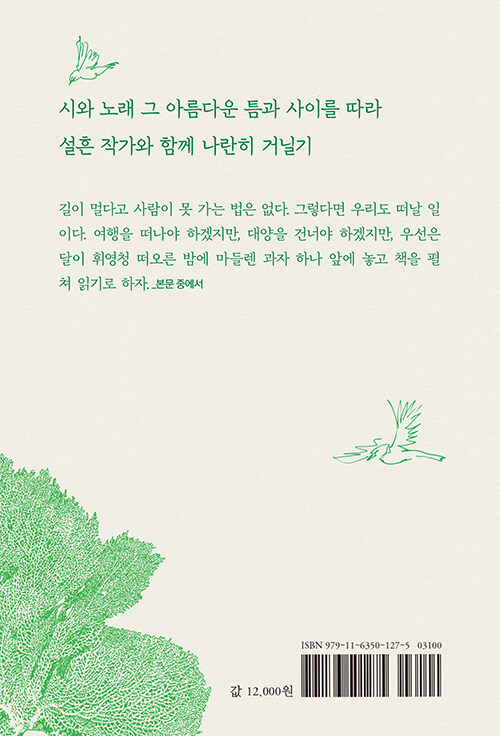 시와 노래 그 아름다운 틈과 사이를 따라
설흔 작가와 함께 나란히 거닐기
길이 멀다고 사람이 못 가는 법은 없다. 그렇다면 우리도 떠날 일
이다. 여행을 떠나야 하겠지만, 대양을 건너야 하겠지만, 우선은
달이 휘영청 떠오른 밤에 마들렌 과자 하나 앞에 놓고 책을 펼
쳐 읽기로 하자. _본문 중에서
ISBN 979-11-6350-127-5 03100
값 12,000원